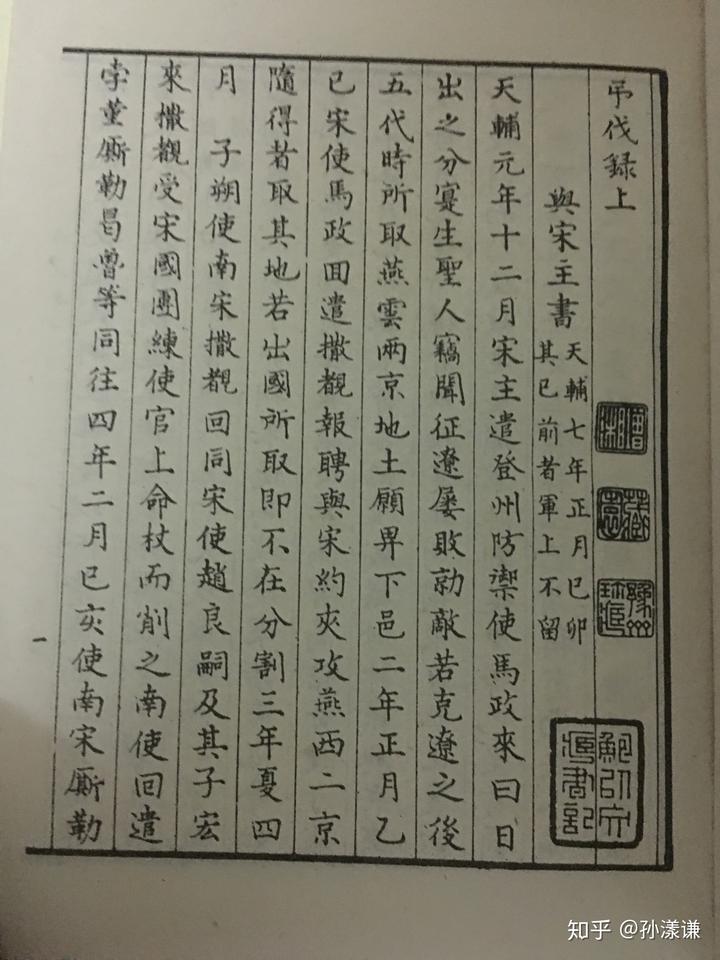 弔伐録上
與宋主書
天輔七年正月已卯
其已前者軍上不留
天輔元年十二月宋主遣登州防禦使馬政來曰日
出之分寔生聖人竊聞征遼屡敗勍敵若克遼之後
五代時所取燕雲兩京地土願畀下邑二年正月乙
已宋使馬政囬遣撒覩報聘與宋約夾攻燕西二京
隨得者取其地若出國所取即不在分割三年夏四
月 子朔使南宋撒覩回同宋使趙良嗣及其子宏
來撒覩受宋國團練使官上命杖而削之南使回遣
孛董廝勒昌曾等同往四年二月已亥使南宋廝勒
一
知乎 @孙漾谦